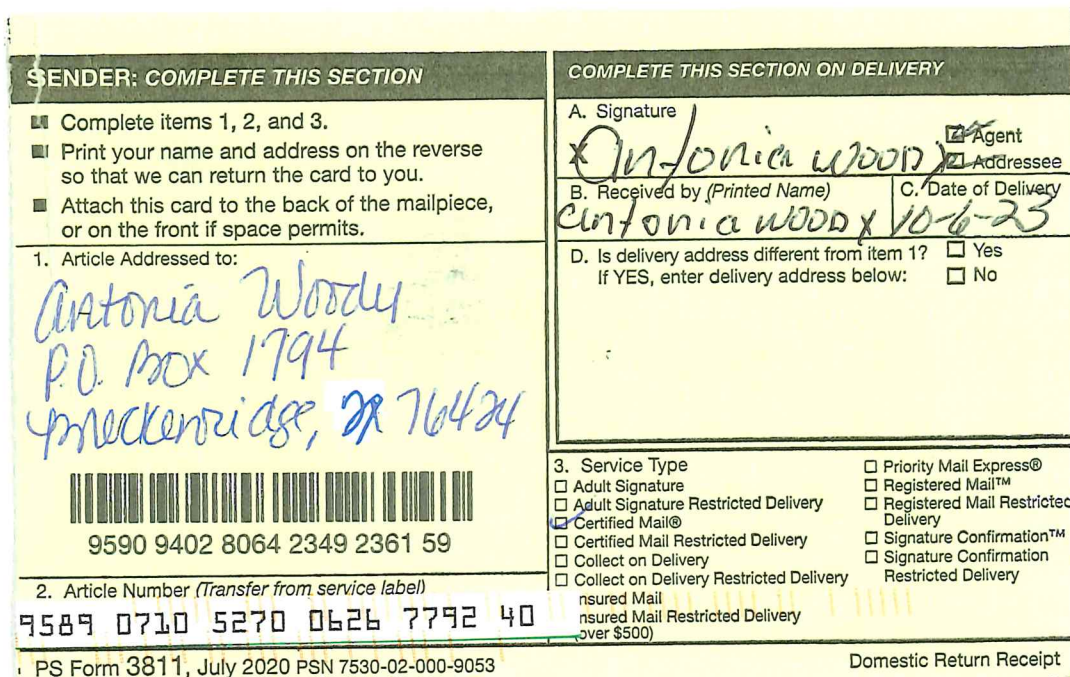 SENDER: COMPLETE THIS SECTION
■ Complete items 1, 2, and 3.
■ Print your name and address on the reverse
so that we can return the card to you.
■ Attach this card to the back of the mailpiece,
or on the front if space permits.
1. Article Addressed to:
Antonia Woody
P.O. Box 1794
Breckenridge, 76424
9590 9402 8064 2349 2361 59
2. Article Number (Transfer from service label)
9589 0710 5270 0626 7792 40
PS Form 3811, July 2020 PSN 7530-02-000-9053
COMPLETE THIS SECTION ON DELIVERY
A. Signature
X Antonia Woody
☐ Agent
☐ Addressee
B. Received by (Printed Name)
Antonia Woody
C. Date of Delivery
10-6-23
D. Is delivery address different from item 1? ☐ Yes
If YES, enter delivery address below: ☐ No
3. Service Type
☐ Adult Signature
☐ Adult Signature Restricted Delivery
☐ Certified Mail®
☐ Certified Mail Restricted Delivery
☐ Collect on Delivery
☐ Collect on Delivery Restricted Delivery
nsured Mail
nsured Mail Restricted Delivery
over $500)
☐ Priority Mail Express®
☐ Registered Mail™
☐ Registered Mail Restricted
Delivery
☐ Signature Confirmation™
☐ Signature Confirmation
Restricted Delivery
Domestic Return Receipt